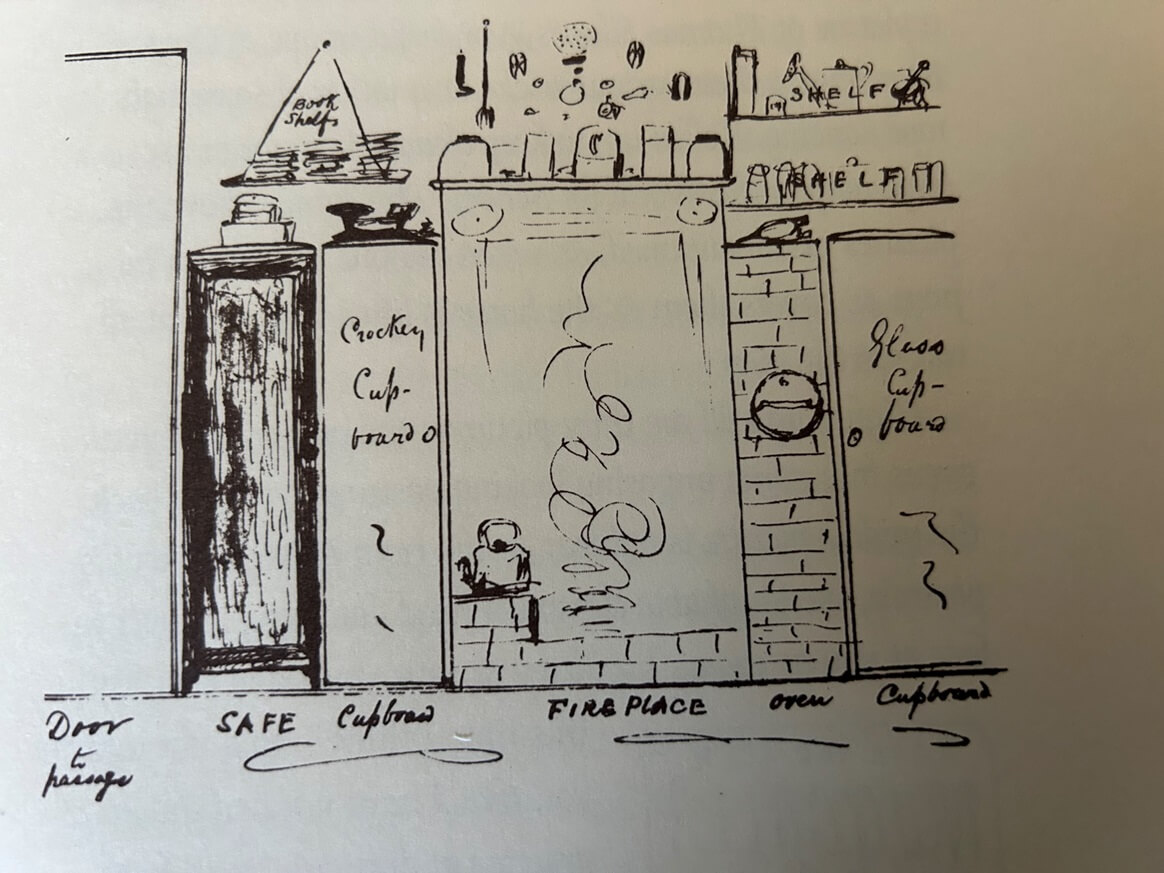 Book
Shelfs
SHELF
SHELF
Crockey
Cup-
board
Glass
Cup-
board
Door
to
passage
SAFE
Cupboard
FIREPLACE
oven
Cupboard